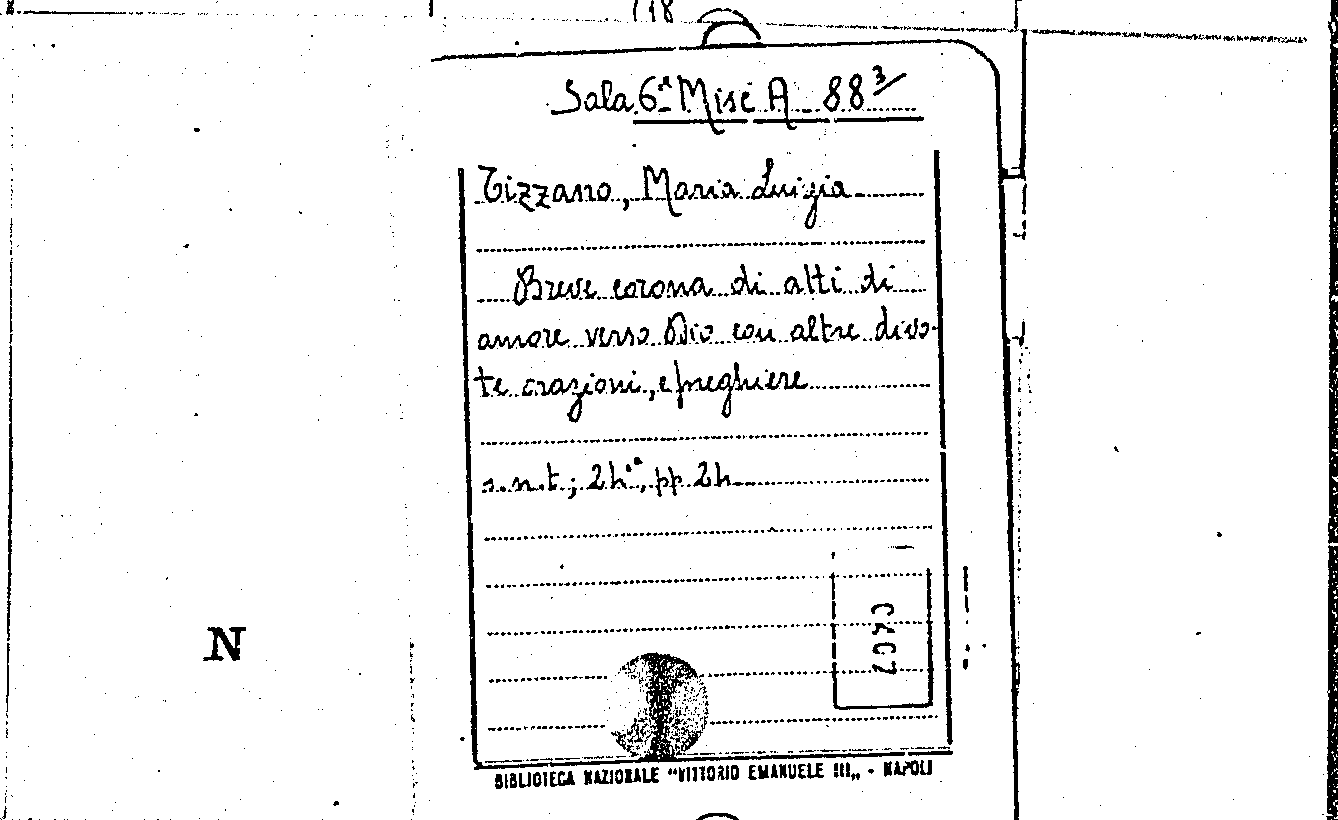 118
Sala 6ª Misc A 88³/
Tizzano, Maria Luigia
Breve corona di atti di
amore verso Dio con altre divo-
te orazioni, e preghiere
s.n.t; 24°, pp 24
C407
N
BIBLIOTECA NAZIONALE "VITTORIO EMANUELE III„ - NAPOLI